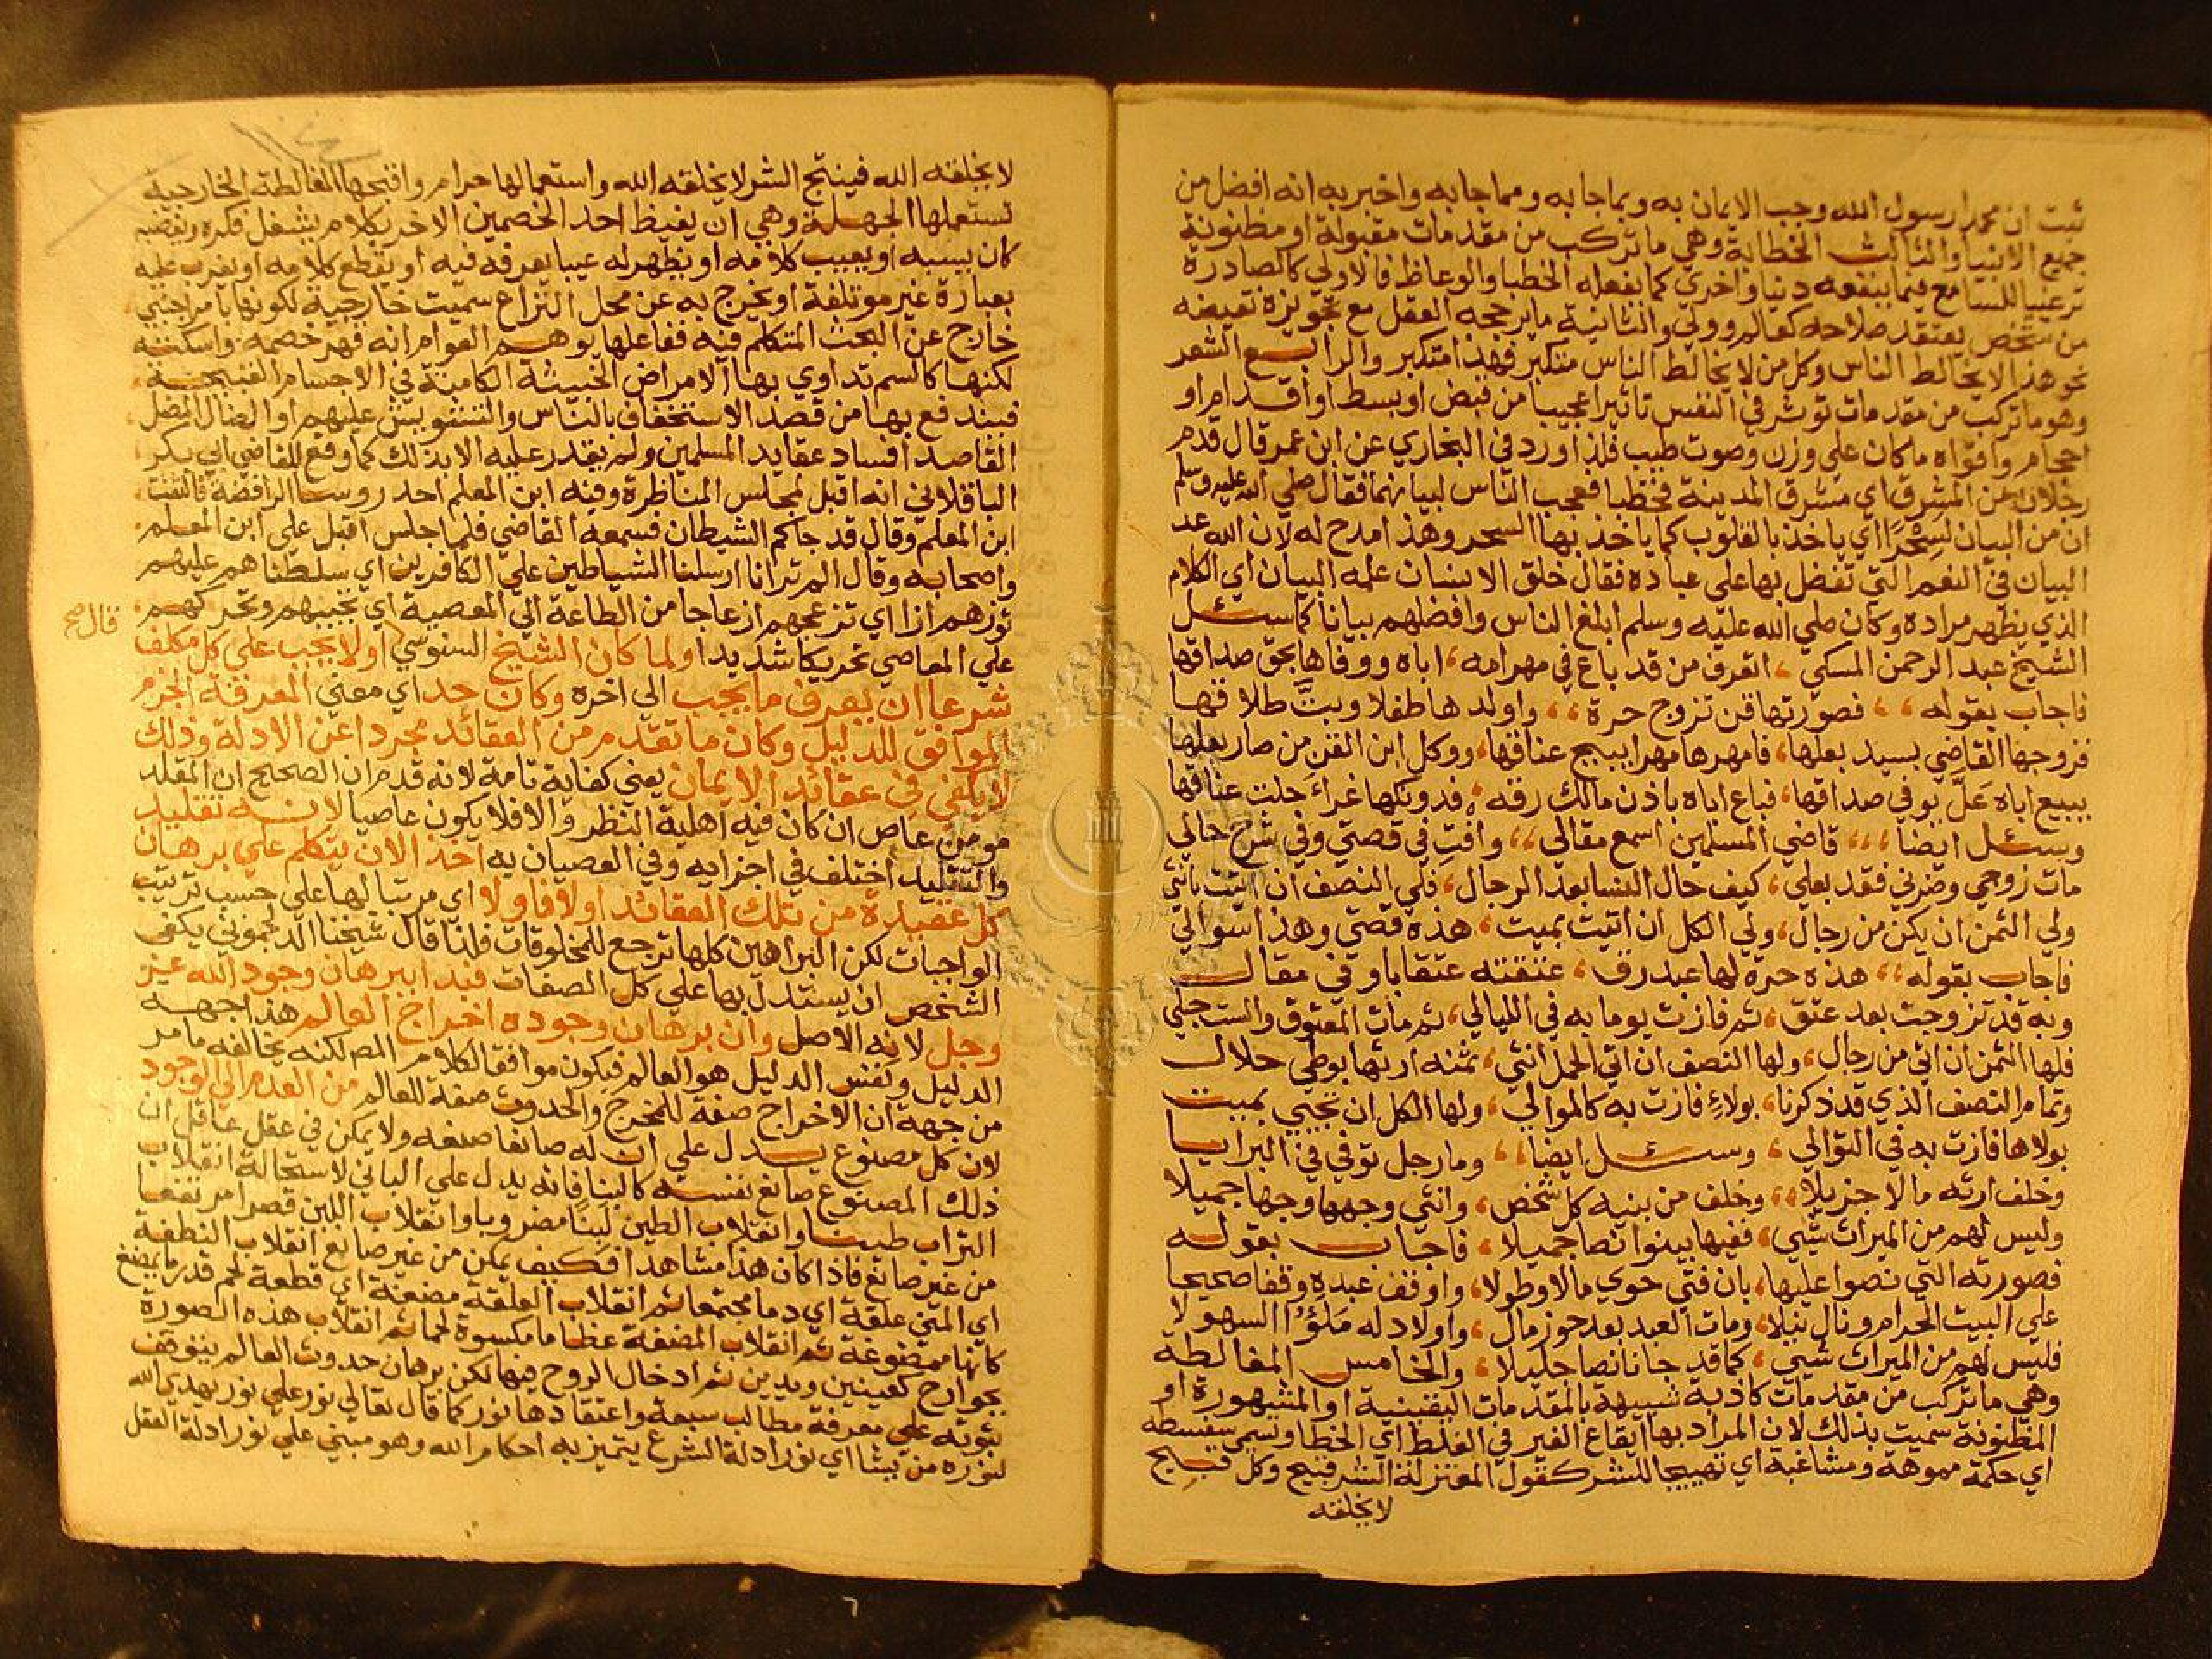 ثبت ان محمدا رسول الله وجب الايمان به وبماجا به ومماجا به واخبر به انه افضل من
جميع الانبيا والثالث الخطابة وهي ما تركب من مقدمات مقبولة او مظنونة
ترغيبا للسامع فيما ينفعه دنيا واخري كما يفعله الخطبا والوعاظ فالاولي كالصادرة
من شخص يعتقد صلاحه كعالم وولي والثانية ما يرجحه العقل مع تجويزه نقيضه
نحو هذا لا يخالط الناس وكل من لا يخالط الناس متكبر فهذا متكبر والرابع الشعر
وهو ما تركب من مقدمات توثر في النفس تاثيرا عجيبا من قبض او بسط او اقدام او
احجام واقواه ما كان علي وزن وصوت طيب فلذا ورد في البخاري عن ابن عمر قال قدم
رجلان من المشرق اي مشرق المدينة فخطبا فعجب الناس لبيانهما فقال صلي الله عليه وسلم
ان من البيان لسِحْرًا اي ياخذ بالقلوب كما ياخذ بها السحر وهذا مدح له لان الله عد
البيان في النعم التي تفضل بها علي عباده فقال خلق الانسان علمه البيان اي الكلام
الذي يظهر مراده وكان صلي الله عليه وسلم ابلغ الناس وافضلهم بيانا كما سئل
الشيخ عبد الرحمن المسكي ، اتعرف من قد باع في مهر امه ، اباه ووفاها بحق صداقها
فاجاب بقوله ،، فصورتها قن تزوج حرة ،، واولدها طفلا وبتَّ طلاقها
فزوجها القاضي بسيد بعلها ، فامهرها مهرا يبيح عناقها ، ووكل ابن القن من صار بعلها
ببيع اباه عَلَّ يوفي صداقها ، فباع اباه باذن مالك رقه ، فدونكها غراء حلت عناقها
وسئل ايضا ،،، قاضي المسلمين اسمع مقالي ،، وافتِ في قصتي وفي شرح حالي
مات زوجي وضرني فقد بعلي ، كيف حال النسا بعد الرجال ، فلي النصف ان اتيت بانثي
ولي الثمن ان يكن من رجال ، ولي الكل ان اتيت بميت ، هذه قصتي وهذا سوالي
فاجاب بقوله ،، هذه حرة لها عبد رق ، عتقته عتقا باوفي مقال
وبه قد تزوجت بعد عتق ، ثم فازت يوما به في الليالي ، ثم مات المعتوق والست حبلي
فلها الثمن ان اتي من رجال ، ولها النصف ان اتي الحمل انثي ، ثمنه ارثها بوطي حلال
وتمام النصف الذي قد ذكرنا ، بولاءٍ فازت به كالموالي ، ولها الكل ان تجيبي بميت
بولاها فازت به في التوالي ، وسئل ايضا ،، وما رجل توفي في البرايا
وخلف ارثه مالا جزيلا ،، وخلف من بنيه كل شخص ، وانثي وجهها وجها جميلا
وليس لهم من الميراث شي ، ففيها بينوا نصا جميلا ، فاجاب بقوله
فصورته التي نصوا عليها ، بان فتي حوي مالا وطولا ، واوقف عبده وقفا صحيحا
علي البيت الحرام ونال نبلا ، ومات العبد بعد حوز مال ، واولاد له مَلَؤُا السهولا
فليس لهم من الميراث شي ، كما قد جانا نصا جليلا ، والخامس المغالطة
وهي ما تركب من مقدمات كاذبة شبيهة بالمقدمات اليقينية او المشهورة او
المظنونة سميت بذلك لان المراد بها ايقاع الغير في الغلط اي الخطا وتسمي سفسطة
اي حكمة مموهة ومشاغبة اي تهييجا للشر كقول المعتزلة الشر قبيح وكل قبيح
لا يخلقه
لا يخلقه الله فينتج الشر لا يخلقه الله واستعمالها حرام واقبحها المغالطة الخارجية
تستعملها الجهلة وهي ان يغيظ احد الخصمين الاخر بكلام يشغل فكره ويغضبه
كان يسبه او يعيب كلامه او يظهر له عيبا يعرفه فيه او يقطع كلامه او يغرب عليه
بعبارة غير موتلفة او يخرج به عن محل النزاع سميت خارجية لكونها بامر اجنبي
خارج عن البحث المتكلم فيه ففاعلها يوهم العوام انه قهر خصمه واسكته
لكنها كالسم تداوي بها الامراض الخبيثة الكامنة في الاجسام القبيحة
فيندفع بها من قصد الاستخفاف بالناس والتشويش عليهم او الضال المضل
القاصد افساد عقايد المسلمين ولم يقدر عليه الا بذلك كما وقع للقاضي ابي بكر
الباقلاني انه اقبل لمجلس المناظرة وفيه ابن المعلم احد روسا الرافضة فالتفت
ابن المعلم وقال قد جاكم الشيطان فسمعه القاضي فلما جلس اقبل علي ابن المعلم
واصحابه وقال الم تر انا ارسلنا الشياطين علي الكافرين اي سلطناهم عليهم
توزهم ازا اي تزعجهم ازعاجا من الطاعة الي المعصية اي تجيبهم وتحركهم
علي المعاصي تحريكا شديدا ولما كان الشيخ السنوسي اولا يجب علي كل مكلف
قال صح
شرعا ان يعرف ما يجب الي اخره وكان حد اي معني المعرفة الجزم
الموافق للدليل وكان ما تقدم من العقائد مجردا عن الادلة وذلك
لا يكفي في عقائد الايمان يعني كفاية تامة لانه قدم ان الصحيح ان المقلد
مومن عاص ان كان فيه اهلية النظر والا فلا يكون عاصيا لانه تقليد
والتقليد اختلف في اجزايه وفي العصيان به اخذ الان يتكلم علي برهان
كل عقيدة من تلك العقائد اولا فاولا اي مرتبا لها علي حسب ترتيب
الواجبات لكن البراهين كلها ترجع للمخلوقات فلذا قال شيخنا الدجموني يكفي
الشخص ان يستدل بها علي كل الصفات فبدا ببرهان وجود الله عز
وجل لانه الاصل وان برهان وجوده اخراج العالم هذا جهة
الدليل ونفس الدليل هو العالم فيكون موافقا لكلام المص لكنه يخالفه ما مر
من جهة ان الاخراج صفة للمخرج والحدوث صفة للعالم من العدم الي الوجود
لان كل مصنوع يدل علي ان له صانعا صنعه ولا يمكن في عقل عاقل ان
ذلك المصنوع صانع نفسه كالبنا فانه يدل علي الباني لاستحالة انقلاب
التراب طينا وانقلاب الطين لَبِنًا مضروبا وانقلاب اللبن قصرا مرتفعا
من غير صانع فاذا كان هذا مشاهدا فكيف يمكن من غير صانع انقلاب النطفة
اي المني علقة اي دما مجتمعا ثم انقلاب العلقة مضغة اي قطعة لحم قدر ما يمضغ
كانها ممضوغة ثم انقلاب المضغة عظاما مكسوة لحما ثم انقلاب هذه الصورة
بجوارح كعينين ويدين ثم ادخال الروح فيها لكن برهان حدوث العالم يتوقف
ثبوته علي معرفة مطالب سبعة واعتقادها نور كما قال تعالي نور علي نور يهدي الله
لنوره من يشا اي نور ادلة الشرع يتميز به احكام الله وهو مبني علي نور ادلة العقل